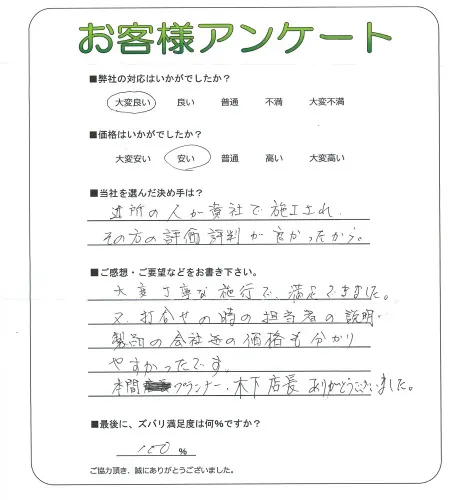 お客様アンケート
■弊社の対応はいかがでしたか？
大変良い 良い 普通 不満 大変不満
■価格はいかがでしたか？
大変安い 安い 普通 高い 大変高い
■当社を選んだ決め手は？
近所の人が貴社で施工され、
その方の評価評判が良かったから。
■ご感想・ご要望などをお書き下さい。
大変丁寧な施行で、満足できました。
又、打合せの時の担当者の説明・
製品の会社毎の価格も分かり
やすかったです。
本間プランナー・木下店長ありがとうございました。
■最後に、ズバリ満足度は何％ですか？
100 ％
ご協力頂き、誠にありがとうございました。